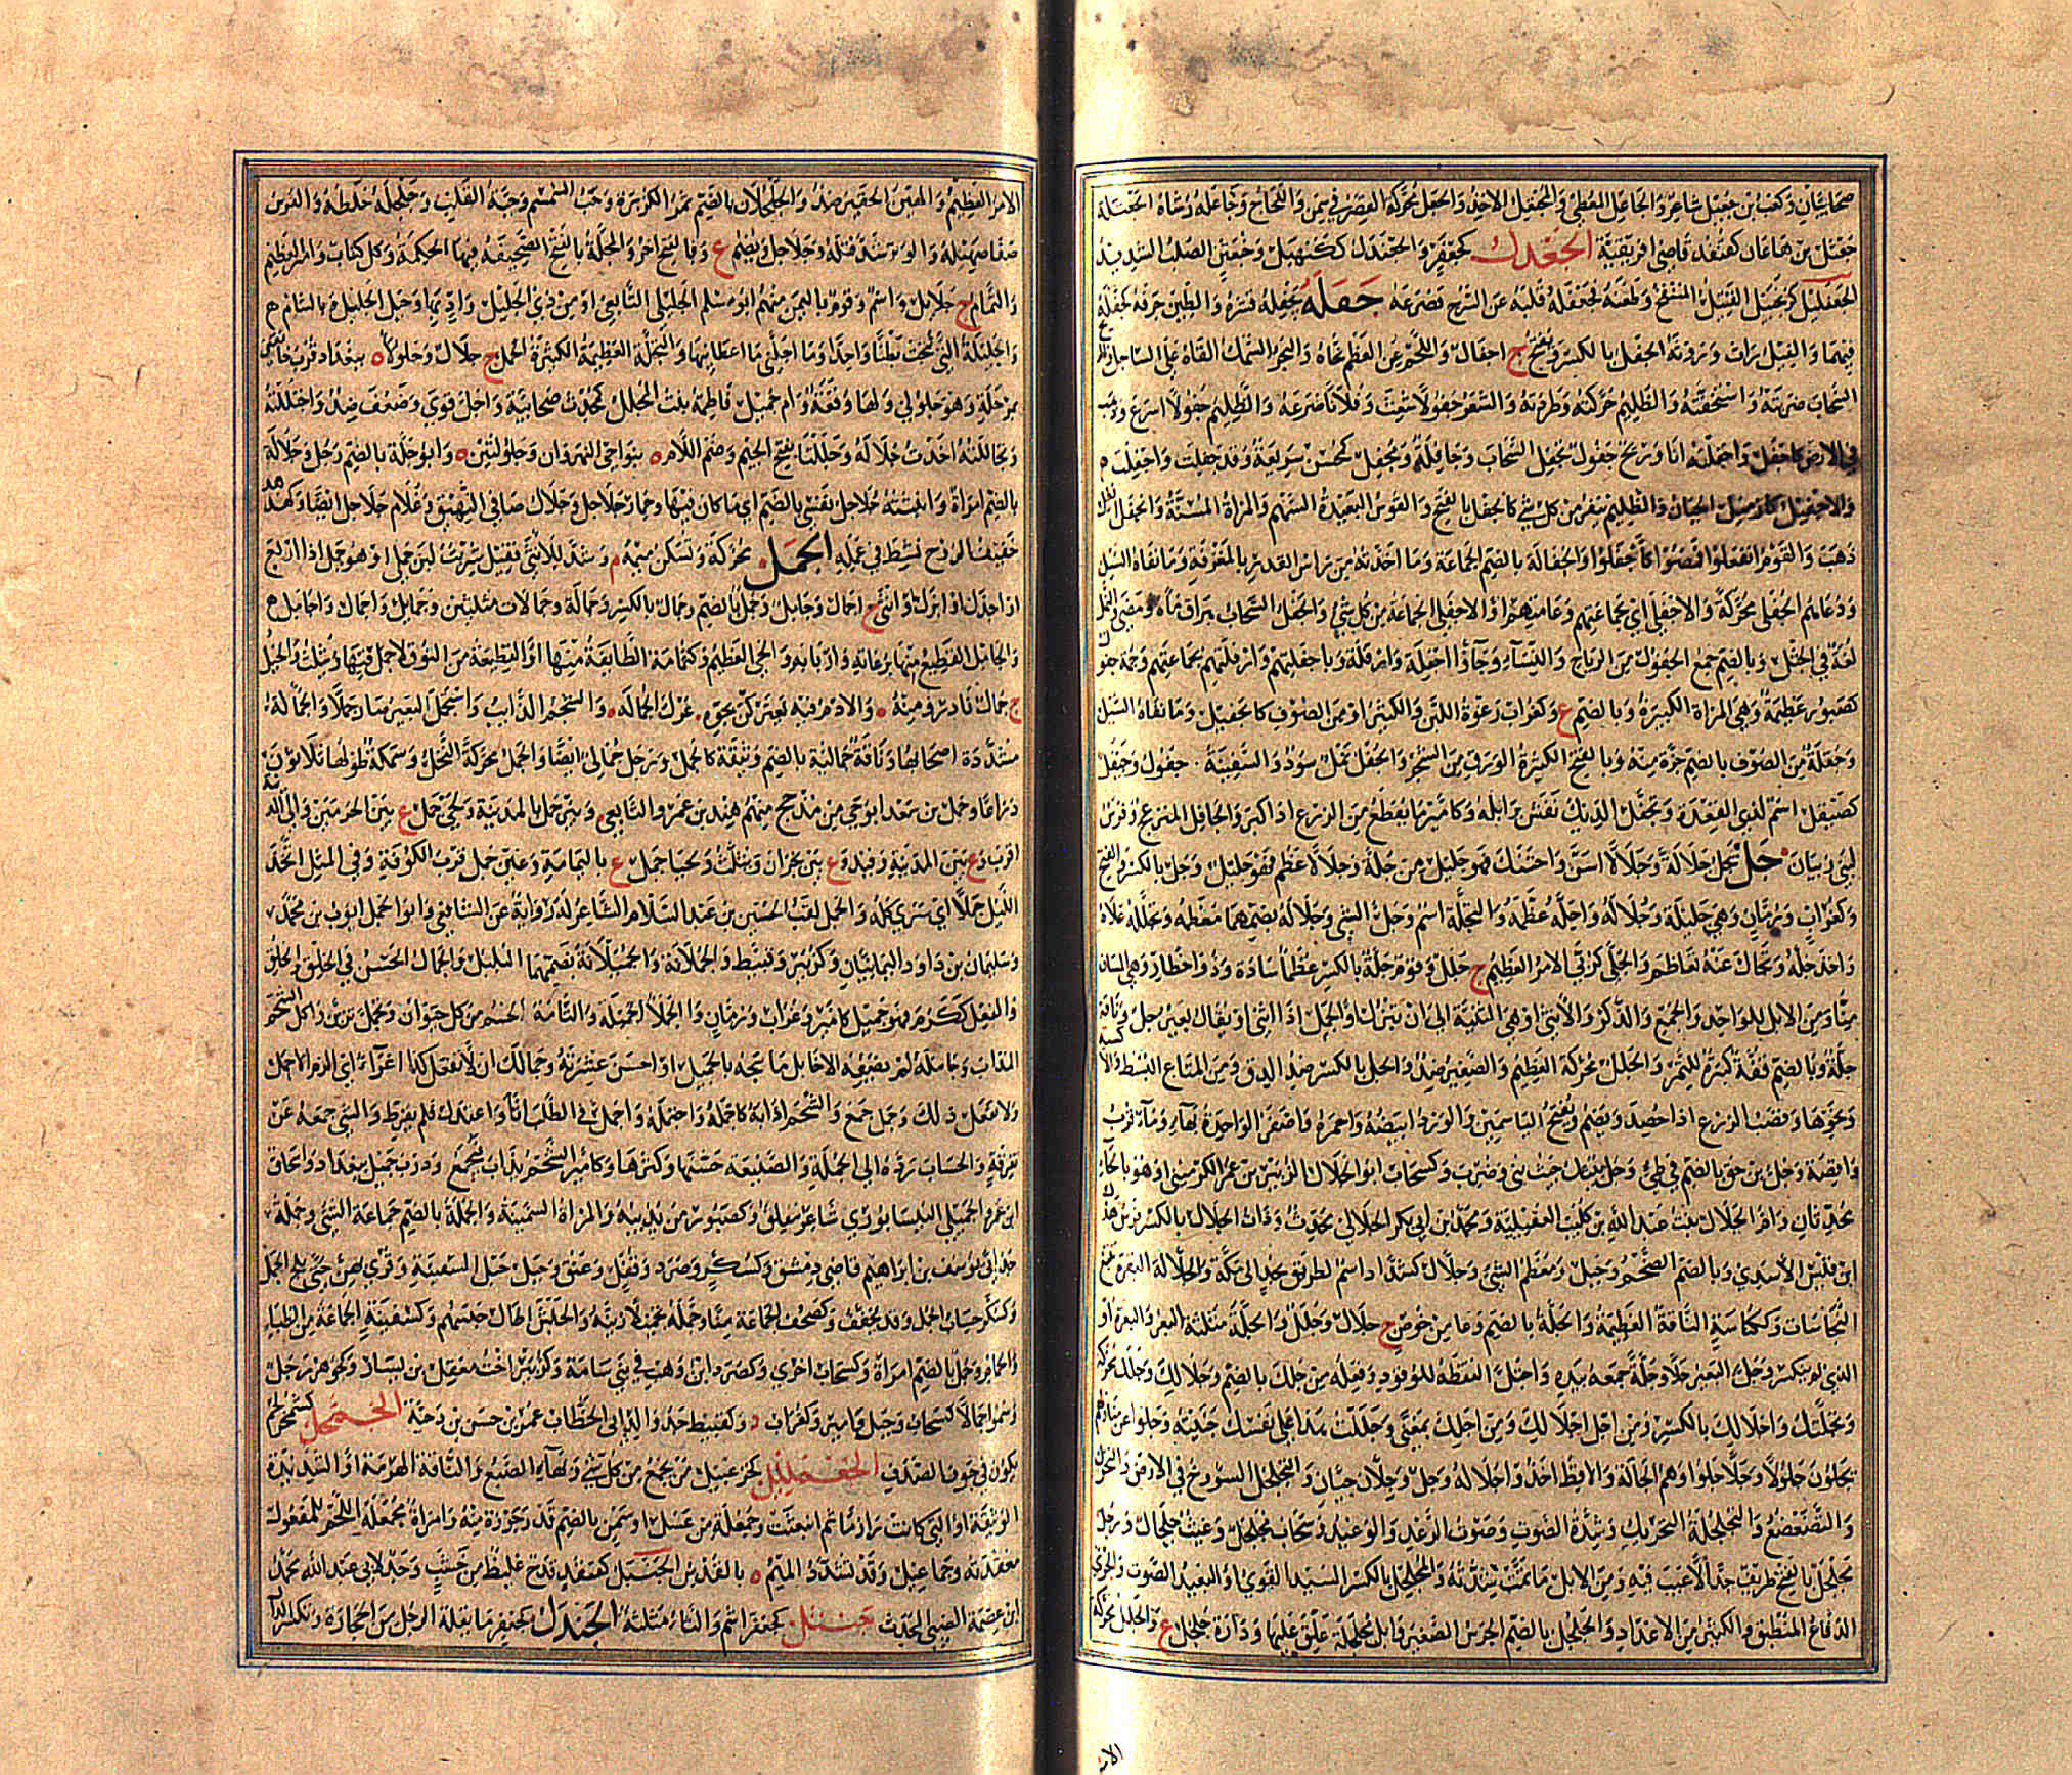 صحابيان وكعب بن جعيل شاعر والجاعل المعطي والمجتعل الآخذ والجعل محركة القصر في سمن واللجاج وجاعله رشاه
جعثل بن هاعان كقنفذ قاضي افريقية الجعدل كجعفر والجعندل ككنهبل الصلب الشديد
القتيل المنتفخ وطعنه فجعفله قلبه عن السرج فصرعه جفله يجفله قشره والطين جرفه كجفله
فيهما والفيل راث وروثه الجفل بالكسر ويفتح ج اجفال واللحم عن العظم نحاه والبحر السمك القاه على الساحل
السحاب ضربته واستخفته والظليم حركته وطردته والشعر جفولا شعث وفلانا صرعه والظليم جفولا اسرع وذهب
في الارض كاجفل واجفلته انا وريح جفول تجفل السحاب وجافلة ومجفل كمحسن سريعة وقد جفلت واجفلت
والاجفيل كازميل الجبان والظليم ينفر من كل شي كالجفل بالفتح والقوس البعيدة السهم والمراة المسنة وانجفل
ذهب والقوم انقلعوا فمضوا كاجفلوا والجفالة بالضم الجماعة وما اخذته من راس القدر بالمغرفة وما نفاه السيل
ودعاهم الجفلى محركة والاجفلى اي بجماعتهم وعامتهم او الاجفلى الجماعة من كل شي والجفل السحاب هراق ماءه ومضى والنمل
لغة في الجثل وبالضم جمع الجفول من الرياح والنساء وجاؤا اجفلة وازفلة وباجفلتهم وازفلتهم بجماعتهم وجمة جفول
كصبور عظيمة وهي المراة الكبيرة وبالضم ع وكغراب رغوة اللبن والكثير او من الصوف كالجفيل وما نفاه السيل
وجفلة من الصوف بالضم جزة منه وبالفتح الكثيرة الورق من الشجر والجفل نمل سود والسفينة ج جفول وجيفل
كصيقل اسم لذي القعدة وتجفل الديك نفش برائله وكامير ما يقطع من الزرع اذا كبر والجافل المنزعج وفرس
لبني ذبيان جل يجل جلالة وجلالا اسن واحتنك فهو جليل من جلة وجلالا عظم فهو جليل وجل بالكسر والفتح
وكغراب ورمان وهي جليلة وجلالة واجله عظمه والتجلة اسم وجل الشي وجلاله بضمهما معظمه وتجلله علاه
واخذ جله وتجال عنه تعاظم والجلى كربى الامر العظيم ج جلل وقوم جلة بالكسر عظما سادة وذوو اخطار وهي المسان
منا ومن الابل للواحد والجمع والذكر والانثى او هي الثنية الى ان تبزل او الجمل اذا اثنى او يقال بعير جل وناقة
جلة وبالضم قفة كبيرة للتمر والجلل محركة العظيم والصغير ضد والجل بالكسر ضد الدق ومن المتاع البسط والاكسية
ونحوها وقصب الزرع اذا حصد ويضم ويفتح الياسمين والورد ابيضه واحمره واصفره الواحدة بهاء وماء قرب
واقصة وجل بن حق بالضم في طي وجل بيتك حيث بني وضرب وكسحاب ابو الجلال الزبير بن عمر الكرميني او هو بالحاء
محدثان وام الجلال بنت عبد الله بن كليب العقيلية ومحمد بن ابي بكر الجلالي محدث وذات الجلال بالكسر فرس هلال
ابن قيس الاسدي وبالضم الضخم وجبل ومعظم الشي وجلال كشداد اسم لطريق نجد الى مكة والجلالة البقرة تتبع
النجاسات وككناسة الناقة العظيمة والجلة بالضم وعاء من خوص ج جلال وجلل والجلة مثلثة البعر والبعرة او
الذي لم ينكسر وجل البعر جلا وجلة جمعه بيده واجتل التقطه للوقود وفعله من جلك بالضم وجلالك وجللك محركة
وتجلتك واجلالك بالكسر ومن اجل اجلالك ومن اجلك بمعنى وجللت هذا على نفسك جنيته وجلوا عن منازلهم
يجلون جلولا وجلا جلوا وهم الجالة والاقط اخذوا جلاله وجل وجلان حيان والتجلجل السووخ في الارض والتحرك
والتضعضع والجلجلة التحريك وشدة الصوت وصوت الرعد والوعيد وسحاب مجلجل وغيث جلجال ورجل
مجلجل بالفتح ظريف جدا لا عيب فيه ومن الابل ما تمت شدته والمجلجل بالكسر السيد القوي او البعيد الصوت والجري
الدفاع المنطيق والكثير من الاعداد والجلجل بالضم الجرس الصغير وابل مجلجلة علق عليها ودارة جلجل ع والجلل محركة
الامر
الامر العظيم والهين الحقير ضد والجلجلان بالضم ثمر الكزبرة وحب السمسم وحبة القلب وجلجله خلطه والفرس
صفا صهيله والوتر شد فتله وجلاجل ويضم ع وبالفتح اخر والمجلة بالفتح الصحيفة فيها الحكمة وكل كتاب والجليل العظيم
والثمام ج جلايل واسم وقوم باليمن منهم ابو مسلم الجليلي التابعي او من ذي الجليل واد بها وجبل الجليل بالشام
والجليلة التي نتجت بطنا واحدا وما اجلني ما اعطانيها والنخلة العظيمة الكثيرة الحمل ج جلال وجلولاء ه ببغداد قرب خانقين
بمرحلة وهو جلولي ولها وقعة وام جميل فاطمة بنت المجلل كمحدث صحابية واجل قوي وضعف ضد واجتللته
وتجاللته اخذت جلاله وجللتا بفتح الجيم وضم اللام ه بنواحي النهروان وجلولتين ه وابو جلة بالضم رجل وجلالة
بالضم امراة وابثثته جلاجل نفسي بالضم اي ما كان فيها وحمار جلاجل وجلال صافي النهيق وغلام جلاجل ايضا وكهدهد
خفيف الروح نشيط في عمله الجمل محركة وتسكن ميمه م وشذ للانثى فقيل شربت لبن جملي او هو جمل اذا اربع
او اجذع او ابزل او اثنى ج اجمال وجامل وجمل بالضم وجمال بالكسر وجمالة وجمالات مثلثتين وجمايل واجمال واجامل
والجامل القطيع منها برعاته واربابه والحي العظيم وكثمامة الطايفة منها او القطيعة من النوق لا جمل فيها ويثلث والخيل
ج جمال نادر ومنه والادم فيه يعتركن بجوه عرك الجمالة والشحم الذايب واستجمل البعير صار جملا والجمالة
مشددة اصحابها وناقة جمالية بالضم وثيقة كالجمل ورجل جمالي ايضا والجمل محركة النخل وسمكة طولها ثلاثون
ذراعا وجمل بن سعد ابو حي من مذحج منهم هند بن عمرو التابعي وبئر جمل بالمدينة ولحي جمل ع بين الحرمين والى المدينة
اقرب وع بين المدينة وفيد وع بين نجران وتثليث ولحيا جمل ع باليمامة وعين جمل قرب الكوفة وفي المثل اتخذ
الليل جملا اي سرى كله والجمل لقب الحسين بن عبد السلام الشاعر له رواية عن الشافعي وابو الجمل ايوب بن محمد
وسليمان بن داود اليمانيان وكزبير وقبيط والجملانة والجميلانة بضمهما البلبل والجمال الحسن في الخلق والخلق
والفعل ككرم فهو جميل كامير وغراب ورمان والجملاء الجميلة والتامة الجسم من كل حيوان وتجمل تزين واكل الشحم
المذاب وجامله لم يصفه الاخاء بل ماسحه بالجميل او احسن عشرته وجمالك ان لا تفعل كذا اغراء اي الزم الاجمل
ولا تفعل ذلك وجمل جمع والشحم اذابه كاجمله واجتمله واجمل في الطلب اتأد واعتدل فلم يفرط والشي جمعه عن
تفرقة والحساب رده الى الجملة والصنيعة حسنها وكثرها وكامير الشحم يذاب فيجمع ودرب جميل ببغداد واسحاق
ابن عمرو الجميلي النيسابوري شاعر مفلق وكصبور من يذيبه والمراة السمينة والجملة بالضم جماعة الشي وجملة
جد يوسف بن ابراهيم قاضي دمشق وكسكر وصرد وقفل وعنق وجبل حبل السفينة وقرى بهن حتى يلج الجمل
وكسكر حساب الجمل وقد يخفف وكصحف الجماعة منا وجمله تجميلا زينه والجيش اطال حبسهم وكسفينة الجماعة من الظباء
والحمام وجمل بالضم امراة وكسحاب اخرى وكصرد ابن وهب في بني سامة وكزبير اخت معقل بن يسار وكجوهر رجل
وسموا جمالا كسحاب وجبل وامير وكغراب د وكقبيط جد والد ابي الخطاب عمر بن حسن بن دحية الجمحل
يكون في جوف الصدف الجمعليل كخزعبيل من يجمع من كل شي وبهاء الضبع والناقة الهرمة او الشديدة
الوثيقة او التي كانت رازما ثم انبعثت وجمعلة من عسل او سمن بالضم قدر جوزة منه وامراة مجمعلة اللحم للمفعول
معقدته وجماعيل وقد تشدد الميم ه بالقدس الجنبل كقنفذ قدح غليظ من خشب وجد لابي عبد الله محمد
ابن عصمة الضبي المحدث جنثل كجعفر اسم والثاء مثلثة الجندل كجعفر ما يقله الرجل من الحجارة وتكسر الدال